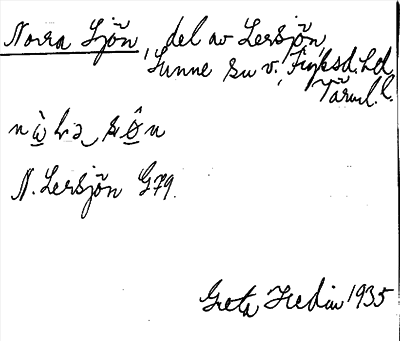 Norra Sjön, del av Lersjön,
Sunne sn v., Fryksd. hd
Värml. l.
N. Lersjön G79.
Greta Hedin 1935